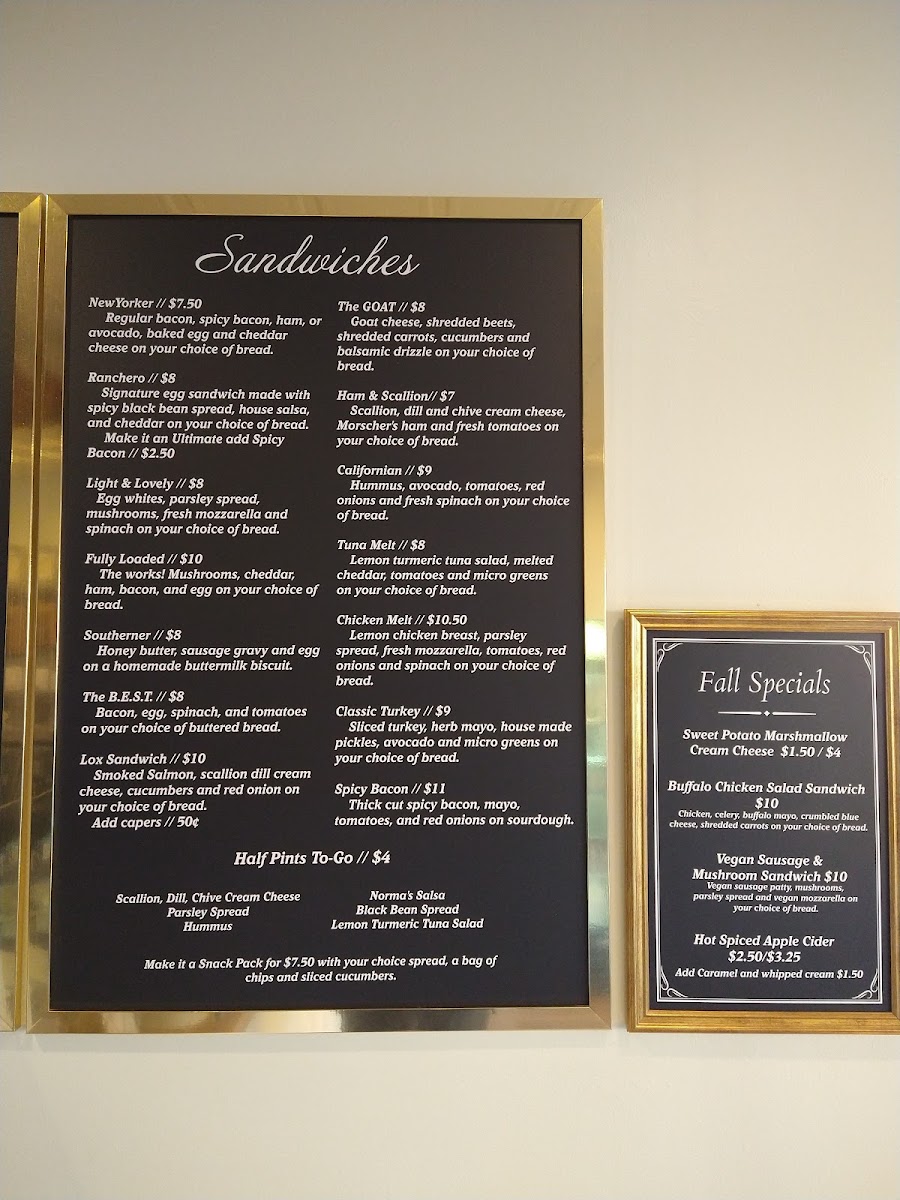 Sandwiches
NewYorker // $7.50
Regular bacon, spicy bacon, ham, or
avocado, baked egg and cheddar
cheese on your choice of bread.
Ranchero // $8
Signature egg sandwich made with
spicy black bean spread, house salsa,
and cheddar on your choice of bread.
Make it an Ultimate add Spicy
Bacon // $2.50
Light & Lovely // $8
Egg whites, parsley spread,
mushrooms, fresh mozzarella and
spinach on your choice of bread.
Fully Loaded // $10
The works! Mushrooms, cheddar,
ham, bacon, and egg on your choice of
bread.
Southerner // $8
Honey butter, sausage gravy and egg
on a homemade buttermilk biscuit.
The B.E.S.T. // $8
Bacon, egg, spinach, and tomatoes
on your choice of buttered bread.
Lox Sandwich // $10
Smoked Salmon, scallion dill cream
cheese, cucumbers and red onion on
your choice of bread.
Add capers // 50¢
The GOAT // $8
Goat cheese, shredded beets,
shredded carrots, cucumbers and
balsamic drizzle on your choice of
bread.
Ham & Scallion// $7
Scallion, dill and chive cream cheese,
Morscher's ham and fresh tomatoes on
your choice of bread.
Californian // $9
Hummus, avocado, tomatoes, red
onions and fresh spinach on your choice
of bread.
Tuna Melt // $8
Lemon turmeric tuna salad, melted
cheddar, tomatoes and micro greens
on your choice of bread.
Chicken Melt // $10.50
Lemon chicken breast, parsley
spread, fresh mozzarella, tomatoes, red
onions and spinach on your choice of
bread.
Classic Turkey // $9
Sliced turkey, herb mayo, house made
pickles, avocado and micro greens on
your choice of bread.
Spicy Bacon // $11
Thick cut spicy bacon, mayo,
tomatoes, and red onions on sourdough.
Half Pints To-Go // $4
Scallion, Dill, Chive Cream Cheese
Parsley Spread
Hummus
Norma's Salsa
Black Bean Spread
Lemon Turmeric Tuna Salad
Make it a Snack Pack for $7.50 with your choice spread, a bag of
chips and sliced cucumbers.
Fall Specials
Sweet Potato Marshmallow
Cream Cheese $1.50 / $4
Buffalo Chicken Salad Sandwich
$10
Chicken, celery, buffalo mayo, crumbled blue
cheese, shredded carrots on your choice of bread.
Vegan Sausage &
Mushroom Sandwich $10
Vegan sausage patty, mushrooms,
parsley spread and vegan mozzarella on
your choice of bread.
Hot Spiced Apple Cider
$2.50/$3.25
Add Caramel and whipped cream $1.50